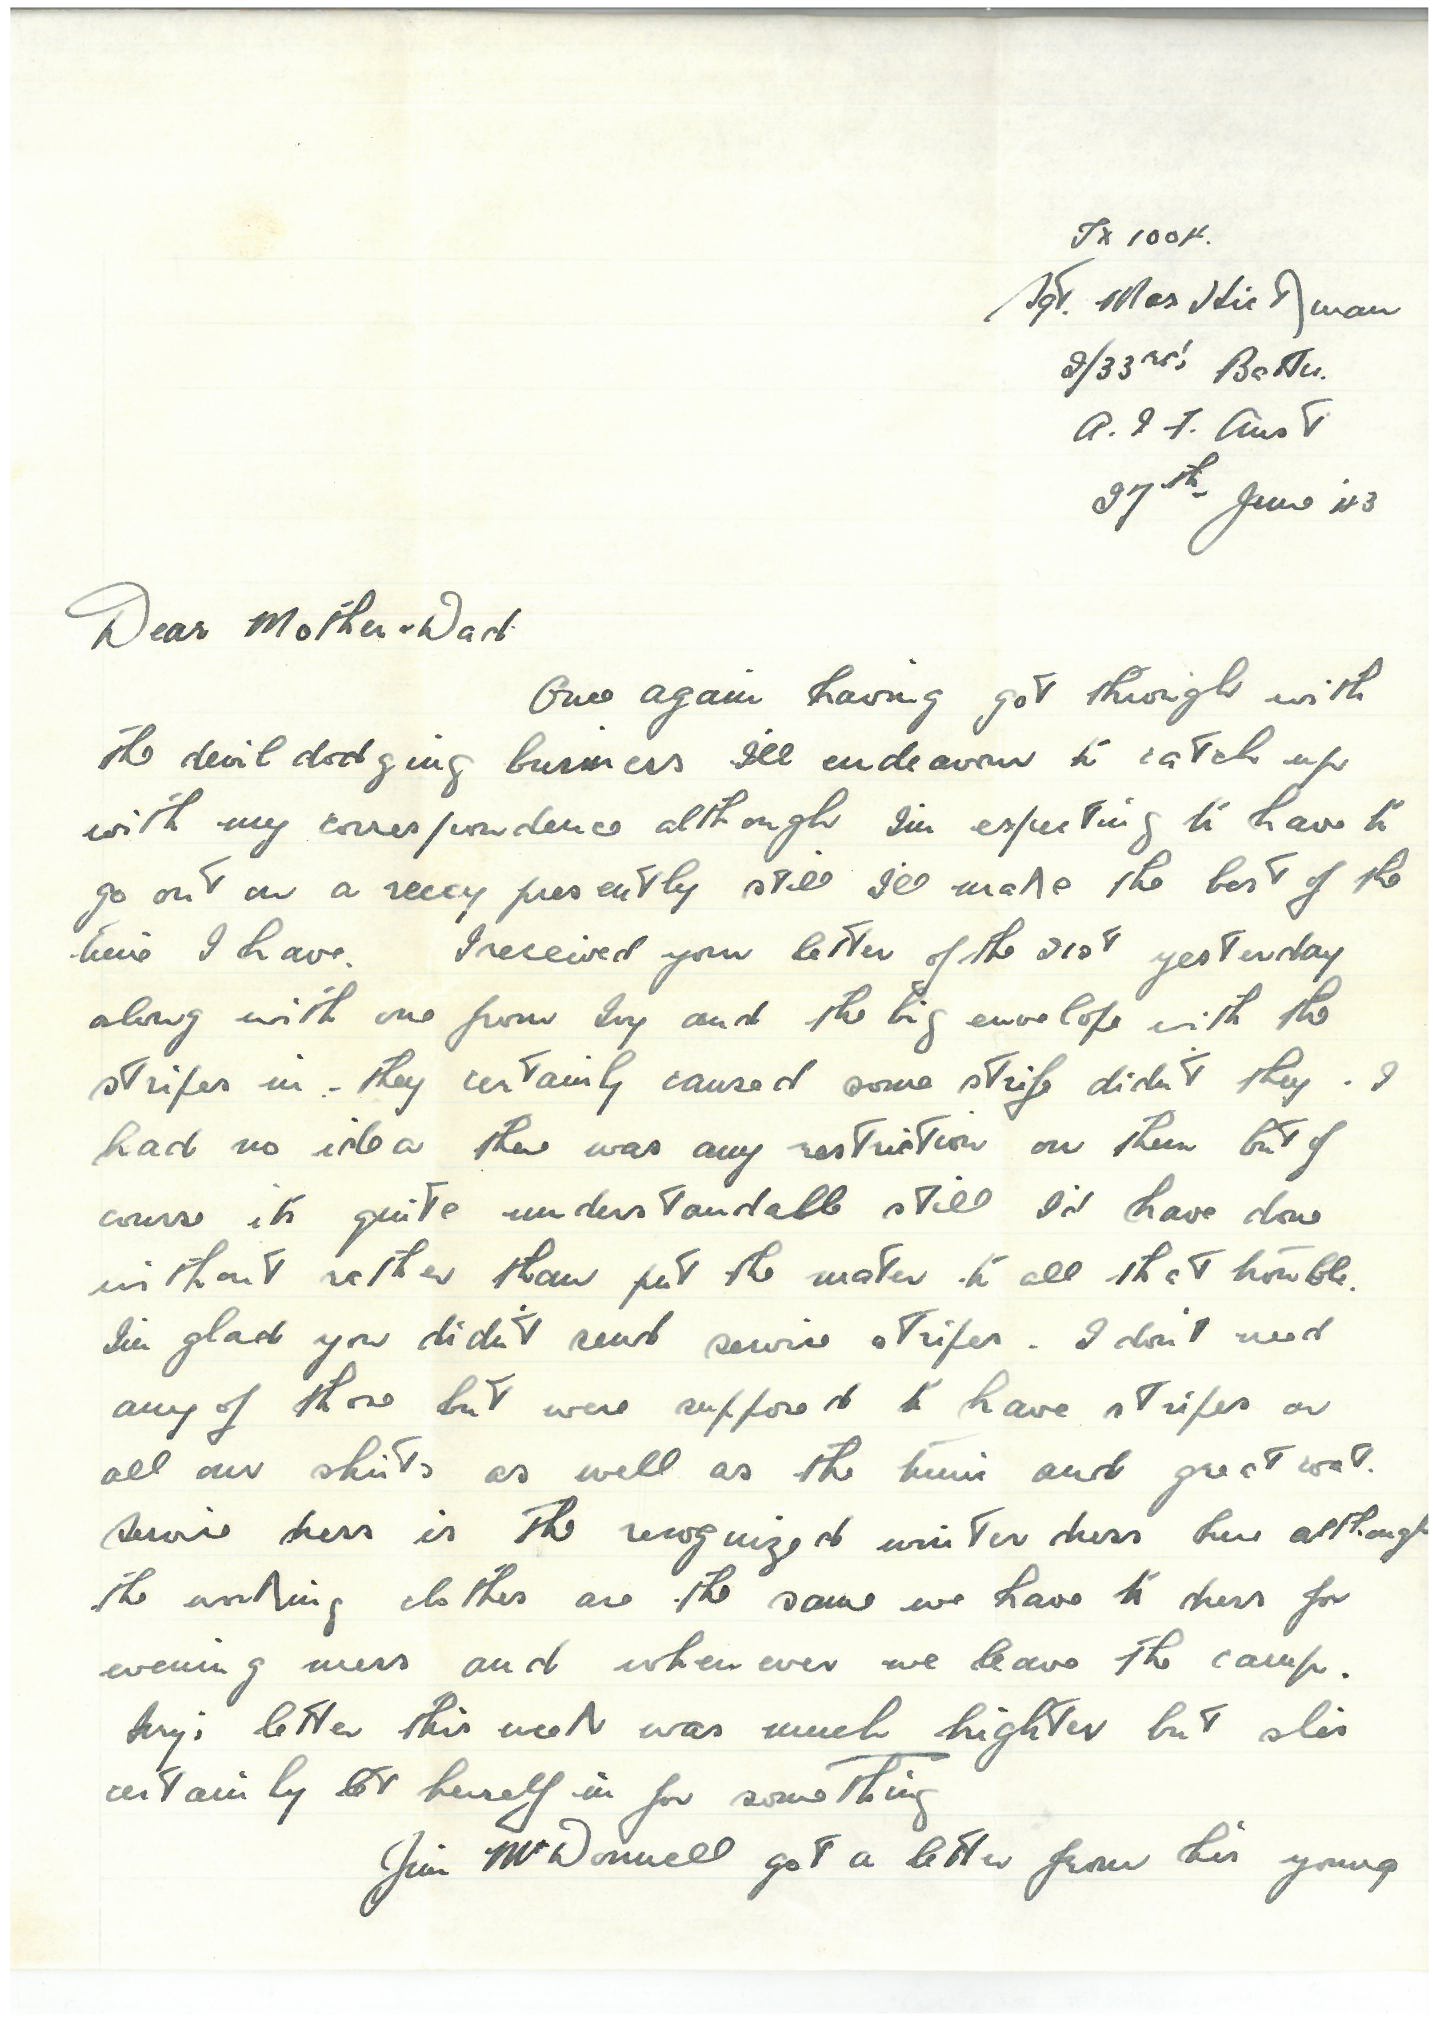 Tx 1004.
Sgt. Max Hickman
2/33rd Battn.
A. I. F. Aust
27th June '43
Dear Mother & Dad
Once again having got through with
the devil dodging business I'll endeavour to catch up
with my correspondence although I'm expecting to have to
go out on a reccy presently still I'll make the best of the
time I have. I received your letter of the 21st yesterday
along with one from Ivy and the big envelope with the
stripes in - they certainly caused some strife didn't they. I
had no idea there was any restriction on them but of
course it's quite understandable still I'd have done
without rather than put the mater to all that trouble.
I'm glad you didn't send service stripes. I don't need
any of those but were supposed to have stripes on
all our shirts as well as the tunic and great coat.
Service dress is the recognized winter dress here although
the working clothes are the same we have to dress for
evening mess and when ever we leave the camp.
Ivy's letter this week was much brighter but she's
certainly let herself in for something
Jim McDonnell got a letter from his young